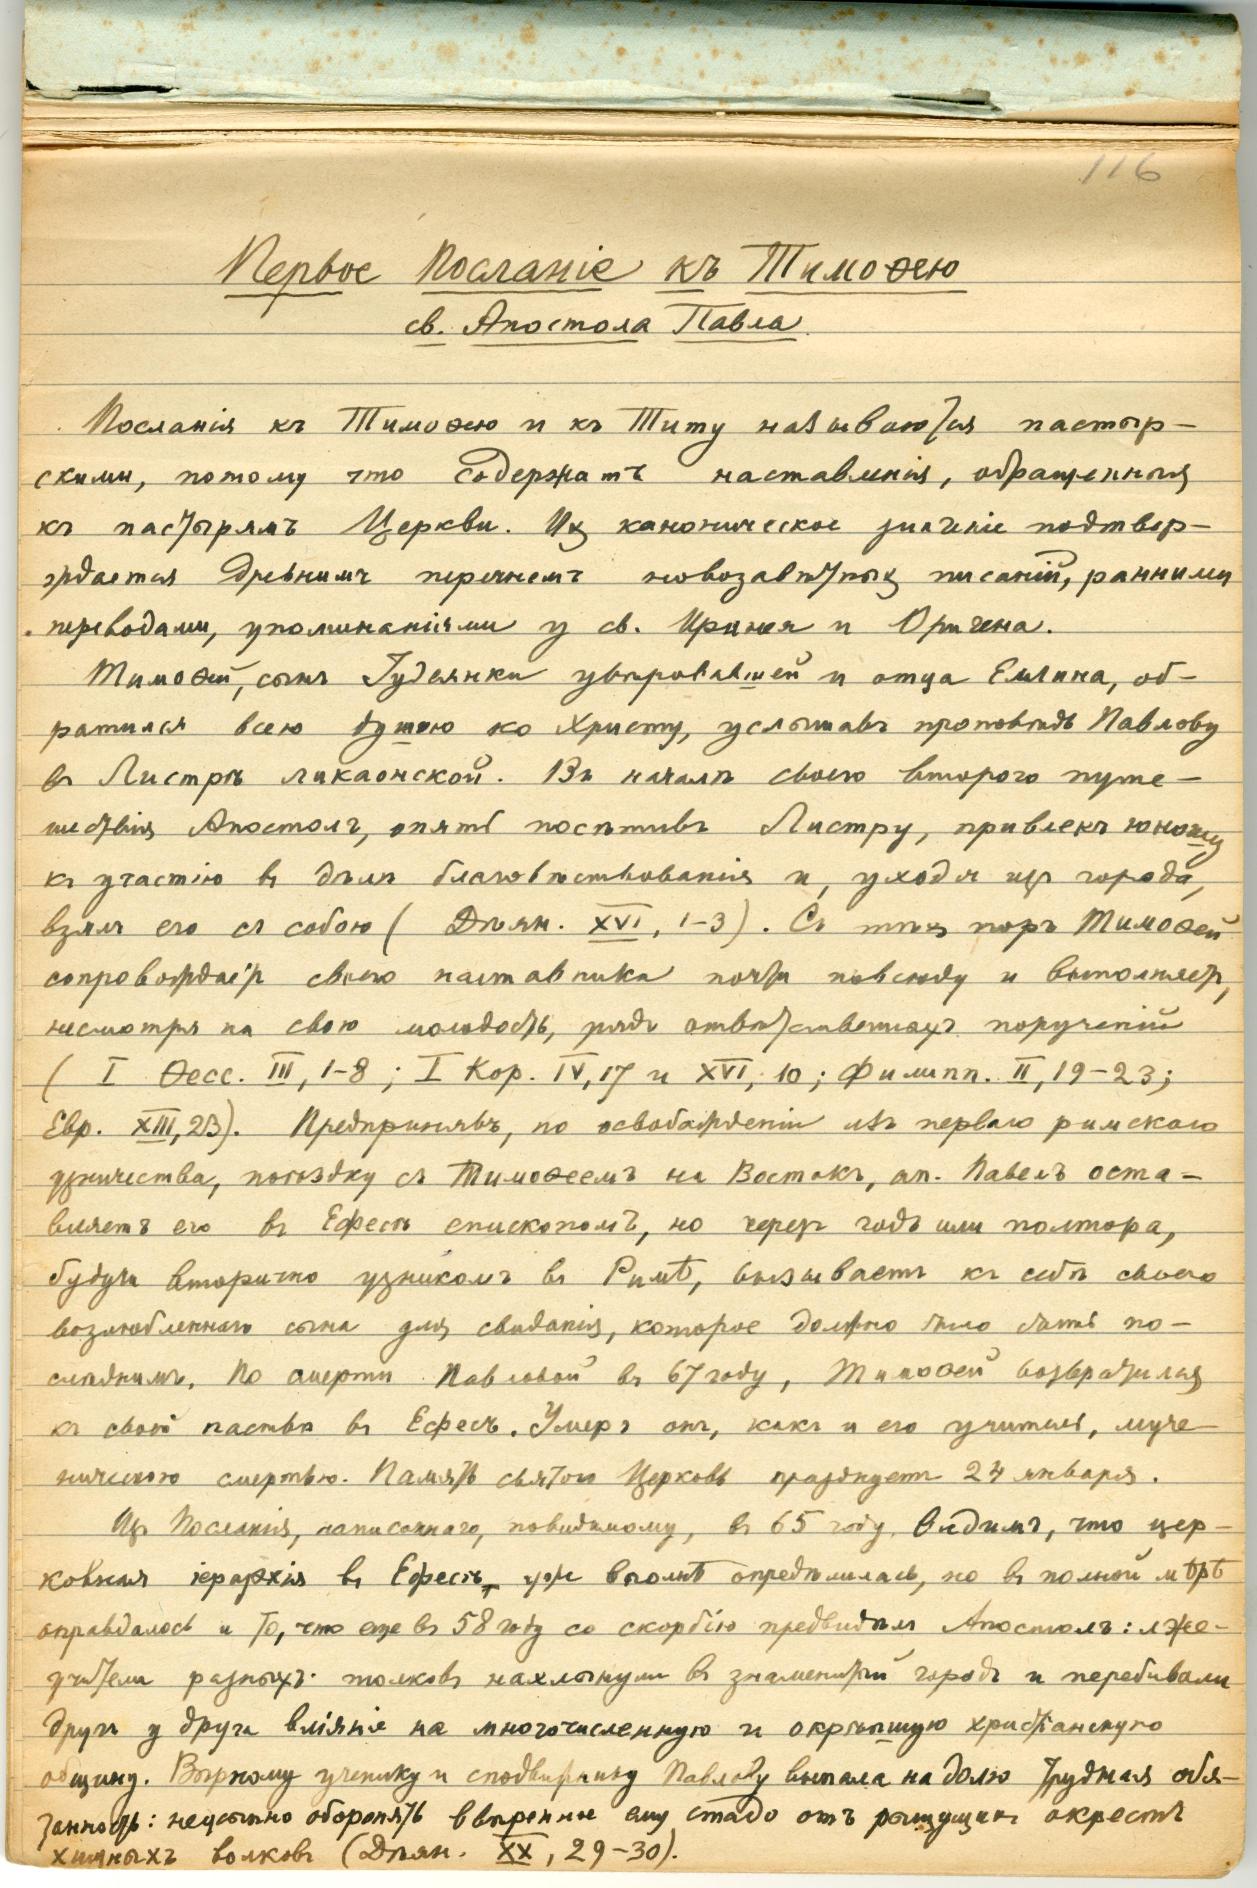 116
Первое Посланіе къ Тимоѳею
св. Апостола Павла.
Посланія къ Тимоѳею и къ Титу называются пастыр-
скими, потому что содержатъ наставленія, обращенныя
къ пастырямъ Церкви. Их каноническое значеніе подтвер-
ждается древнимъ перечнемъ новозавѣтных писаній, ранними
переводами, упоминаніями у св. Иринея и Оригена.
Тимоѳей, сынъ Іудеянки увѣровавшей и отца Еллина, об-
ратился всею душою ко Христу, услышавъ проповѣдь Павлову
въ Листрѣ ликаонской. Въ началѣ своего второго путе-
шествія Апостолъ, опять посѣтивъ Листру, привлекъ юношу
къ участію въ дѣлѣ благовѣствованія и, уходя из города,
взялъ его съ собою (Дѣян. XVI, 1-3). Съ тѣх поръ Тимоѳей
сопровождает своего наставника почти повсюду и выполняет,
несмотря на свою молодость, рядъ отвѣтственныхъ порученій
( I Ѳесс. III, 1-8 ; I Кор. IV, 17 и XVI, 10 ; Филипп. II, 19-23;
Евр. XIII, 23). Предпринявъ, по освобожденіи изъ перваго римскаго
узничества, поѣздку съ Тимоѳеемъ на Востокъ, ап. Павелъ оста-
вляетъ его въ Ефесѣ епископомъ, но через годъ или полтора,
будучи вторично узникомъ въ Римѣ, вызываетъ къ себѣ своего
возлюбленнаго сына для свиданія, которое должно было быть по-
слѣднимъ. По смерти Павловой въ 67 году, Тимоѳей возвратился
къ своей паствѣ въ Ефесъ. Умеръ онъ, какъ и его учитель, муче-
ническою смертью. Память святого Церковь празднуетъ 24 января.
Из Посланія, написаннаго, повидимому, въ 65 году, видимъ, что цер-
ковная іерархія въ Ефесѣ уже вполнѣ опредѣлилась, но въ полной мѣрѣ
оправдалось и то, что еще въ 58 году со скорбію предвидѣлъ Апостолъ: лже-
учители разныхъ толковъ нахлынули въ знаменитый городъ и перебивали
другъ у друга вліяніе на многочисленную и окрѣпшую христіанскую
общину. Вѣрному ученику и сподвижнику Павлову выпала на долю трудная обя-
занность: неусыпно оборонять ввѣренное ему стадо отъ рыщущих окрестъ
хищныхъ волковъ (Дѣян. XX, 29-30).